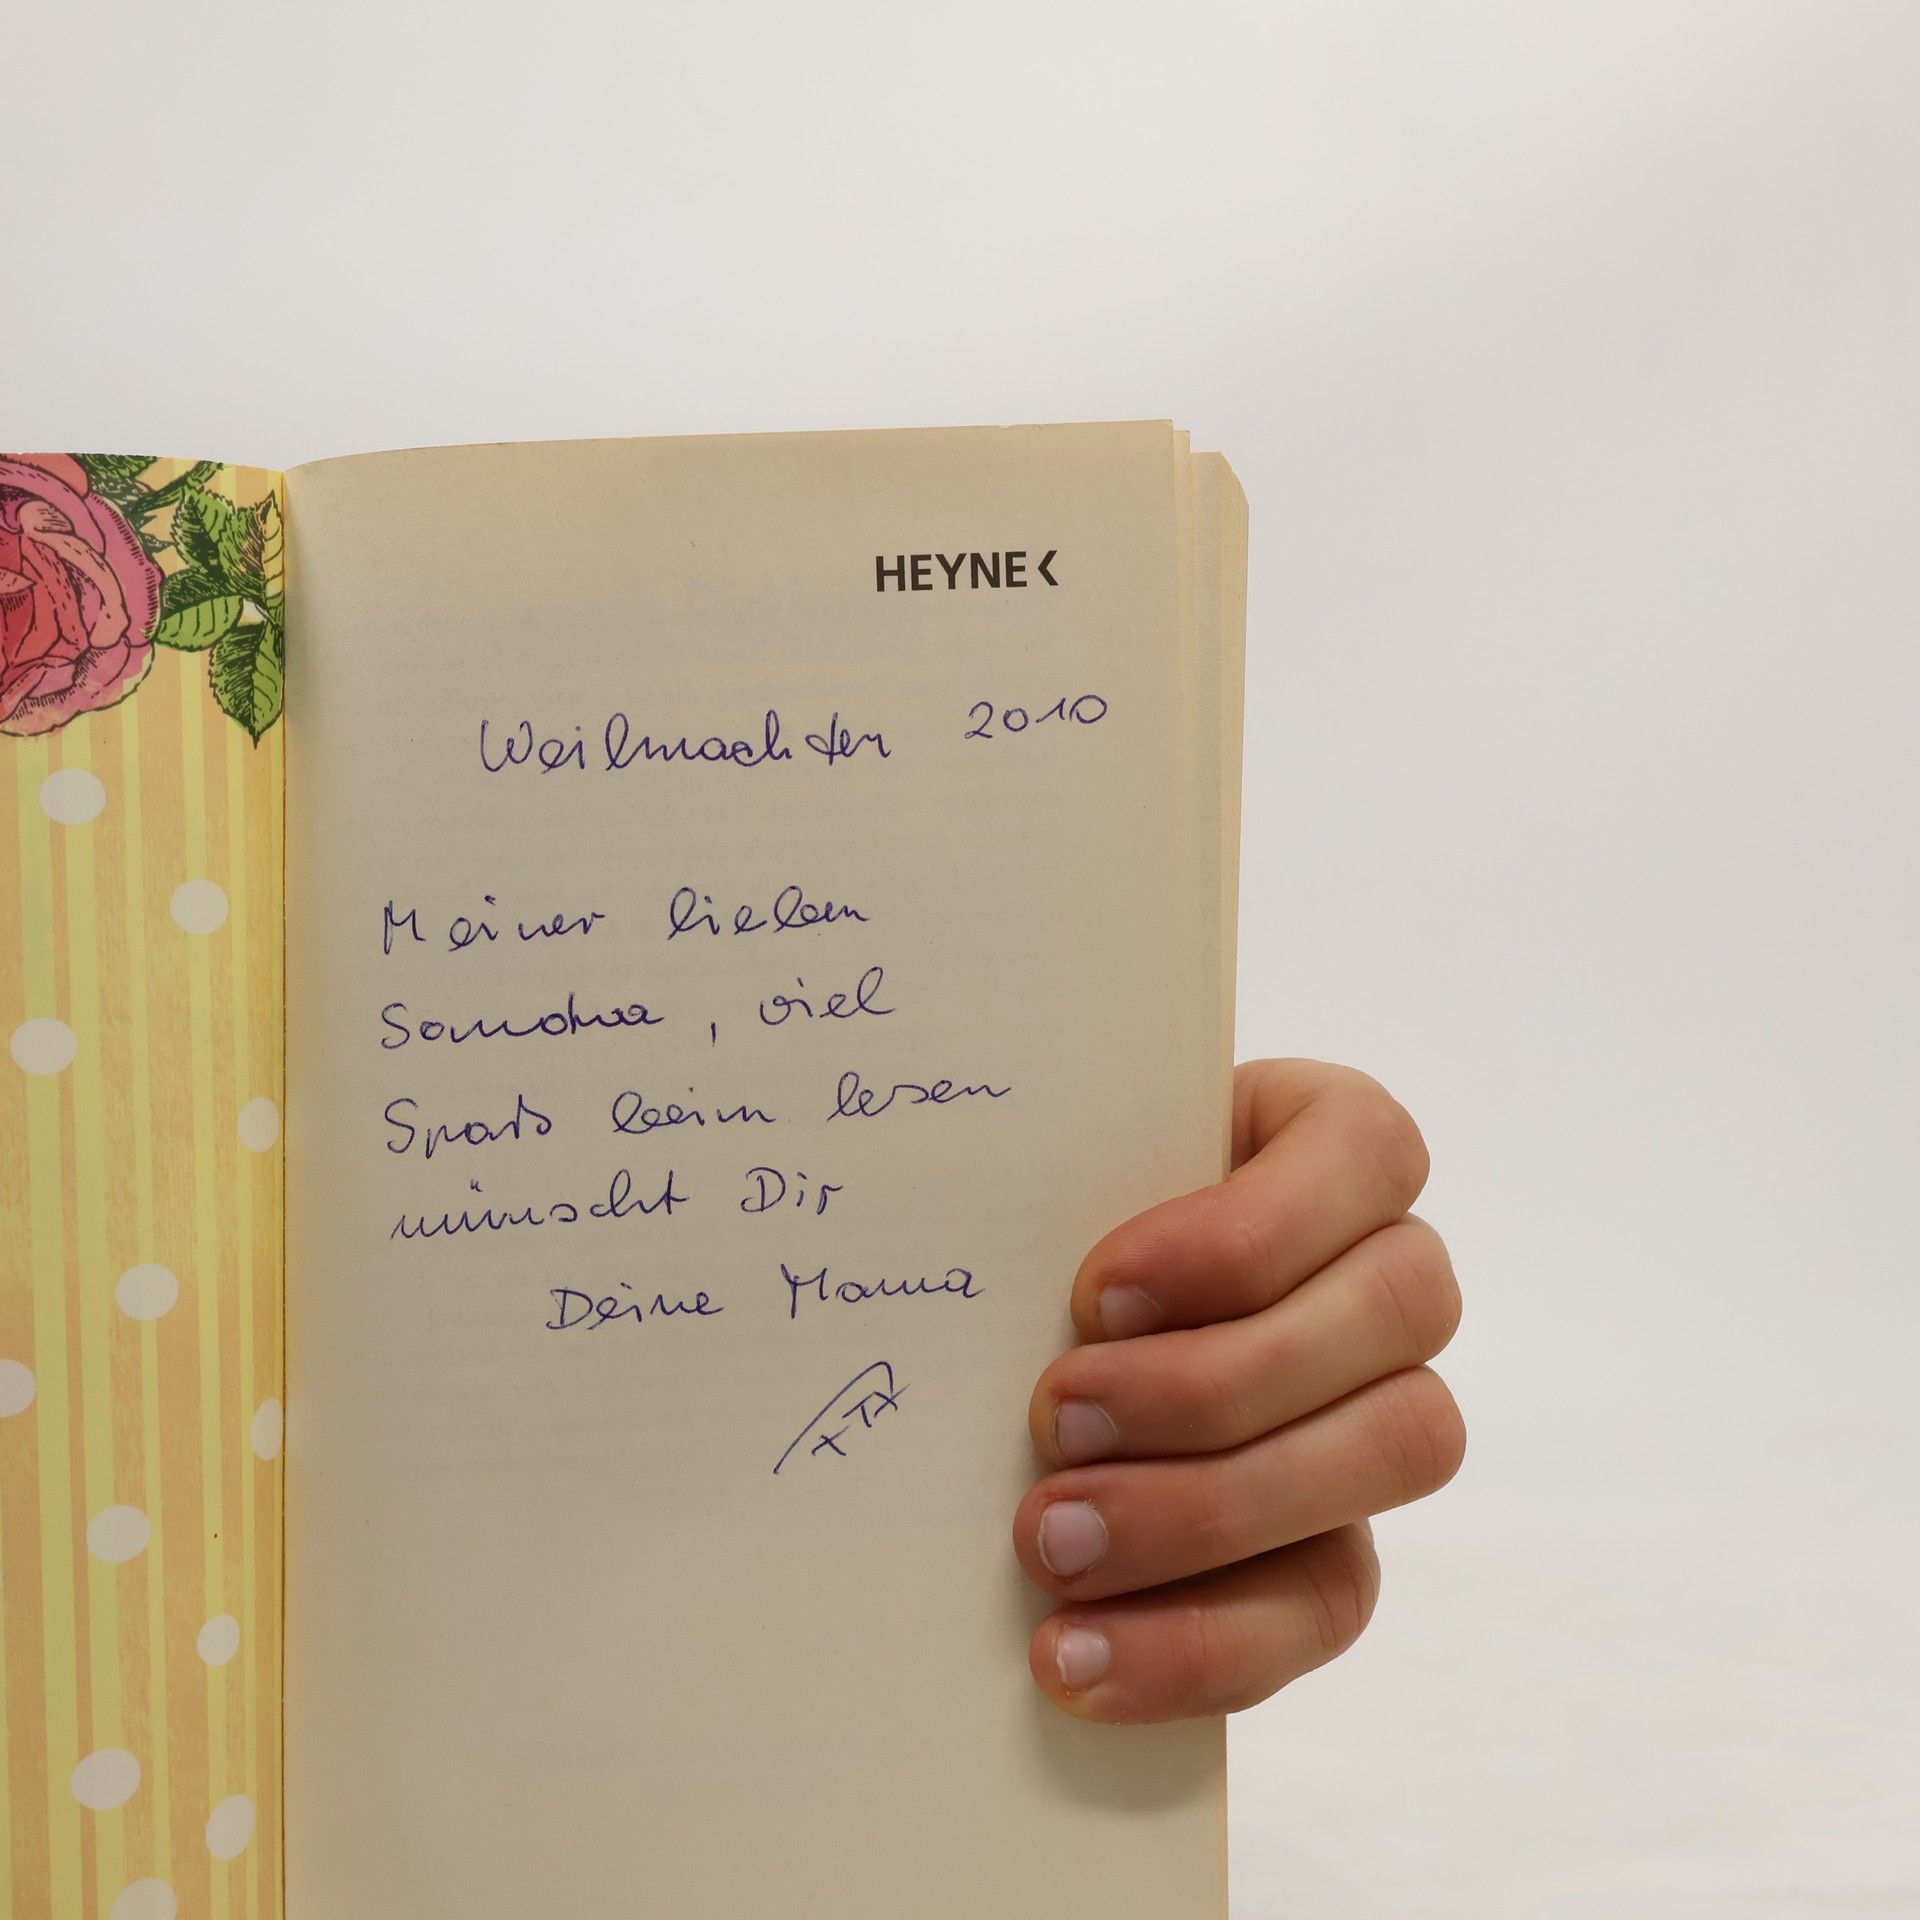 HEYNE<
Weihnachten 2010
Meiner lieben
Sandra, viel
Spaß beim lesen
wünscht Dir
Deine Mama